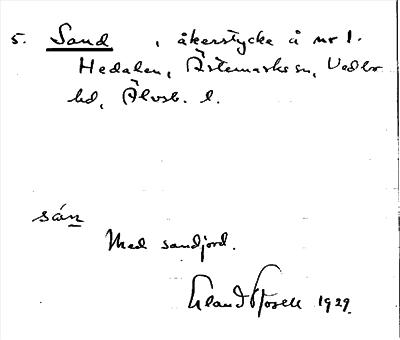 5. Sand, åkerstycke å nr 1.
Hedalen, Ärtemarks sn, Vedbo
hd, Älvsb. l.
sán
Med sandjord.
Erland Rosell 1929.